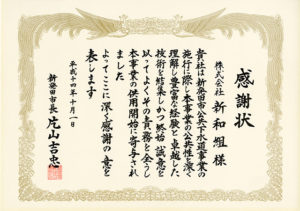 感謝状
株式会社 新和組 様
貴社は新発田市公共下水道事業の
施行に際し本事業の公共性を深く
理解し豊富な経験と卓越した
技術を結集しかつ終始誠意を
以ってよくその責務を全うし
本事業の供用開始に寄与され
ました
よってここに深く感謝の意を
表します
平成十四年十月一日
新発田市長 片山吉忠